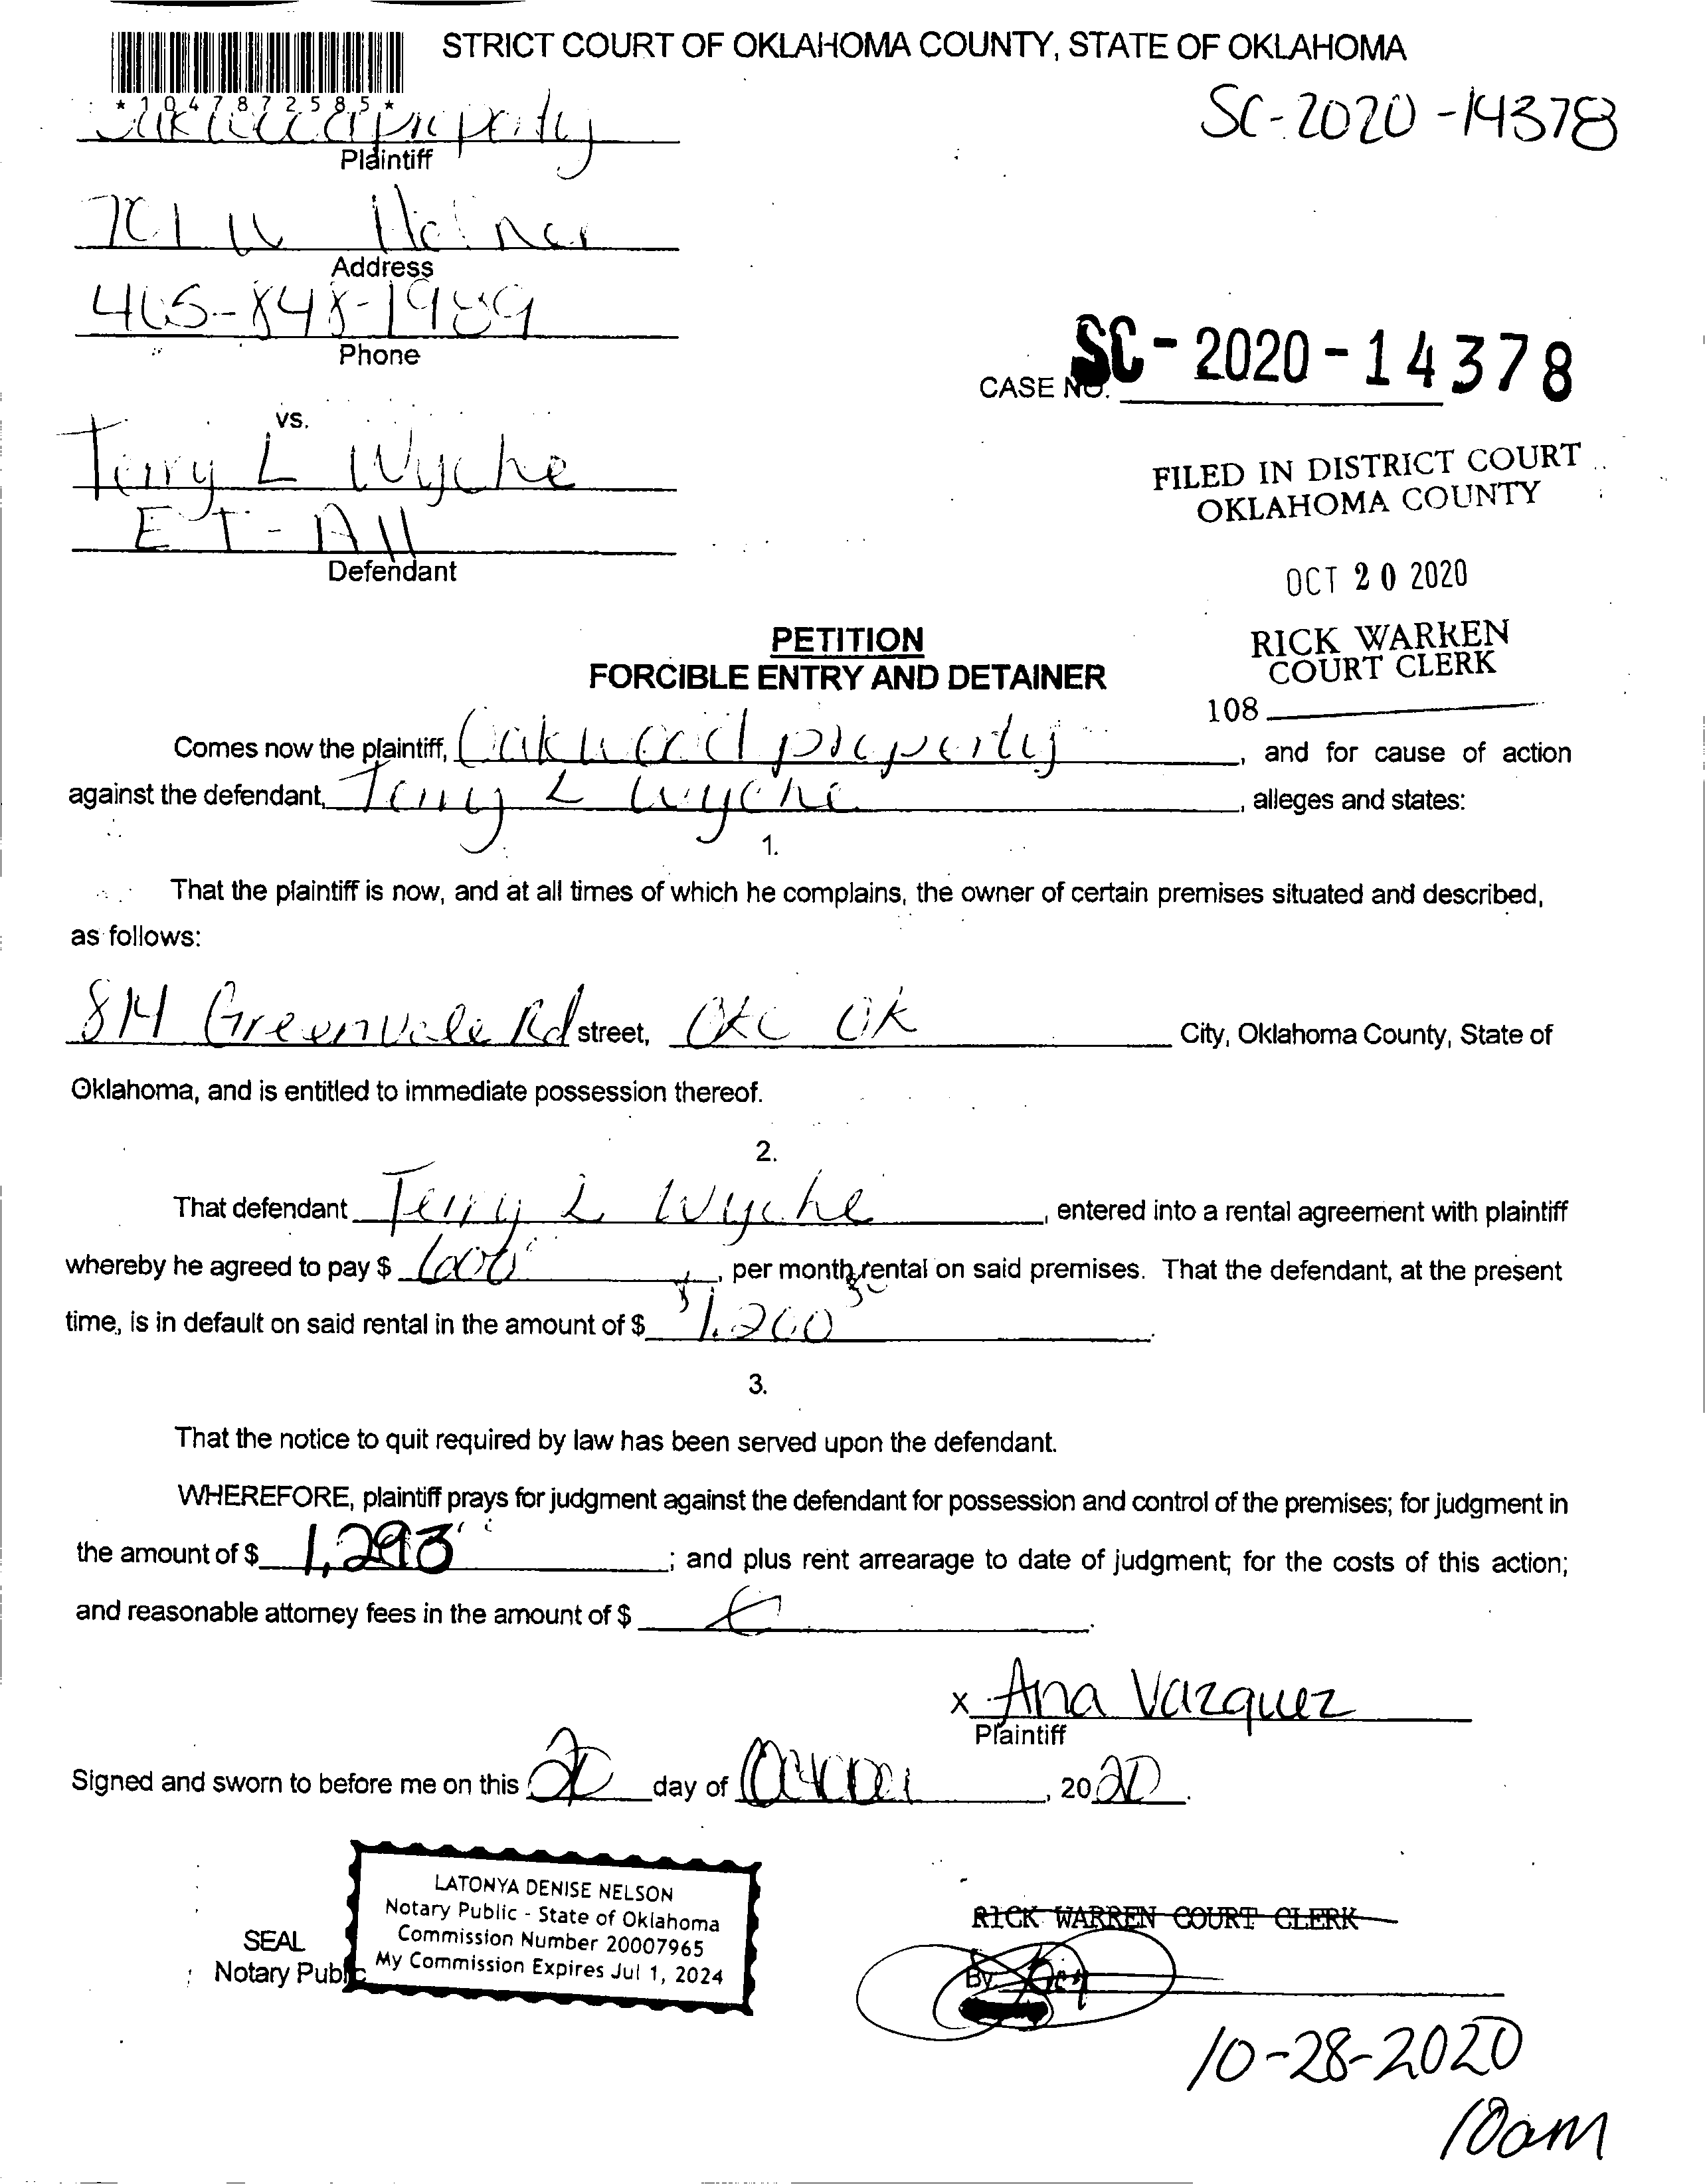 STRICT COURT OF OKLAHOMA COUNTY, STATE OF OKLAHOMA
*1047872585*
SC-2020-14378
Oakwood property
Plaintiff
701 W
Address
405-848-1989
Phone
CASE NO. SC-2020-14378
vs.
Terry L Wyche
ET-All
Defendant
FILED IN DISTRICT COURT
OKLAHOMA COUNTY
OCT 20 2020
RICK WARREN
COURT CLERK
108
PETITION
FORCIBLE ENTRY AND DETAINER
Comes now the plaintiff, Oakwood property, and for cause of action
against the defendant, Terry L Wyche, alleges and states:
1.
That the plaintiff is now, and at all times of which he complains, the owner of certain premises situated and described,
as follows:
814 Greenvale Rd street, OKC OK City, Oklahoma County, State of
Oklahoma, and is entitled to immediate possession thereof.
2.
That defendant Terry L Wyche, entered into a rental agreement with plaintiff
whereby he agreed to pay $ 600, per month rental on said premises. That the defendant, at the present
time, is in default on said rental in the amount of $ $1,200.
3.
That the notice to quit required by law has been served upon the defendant.
WHEREFORE, plaintiff prays for judgment against the defendant for possession and control of the premises; for judgment in
the amount of $ 1,293; and plus rent arrearage to date of judgment; for the costs of this action;
and reasonable attorney fees in the amount of $
x Ana Vazquez
Plaintiff
Signed and sworn to before me on this 20 day of October, 2020.
LATONYA DENISE NELSON
Notary Public - State of Oklahoma
Commission Number 20007965
My Commission Expires Jul 1, 2024
SEAL
Notary Public
RICK WARREN COURT CLERK
By
10-28-2020
10am